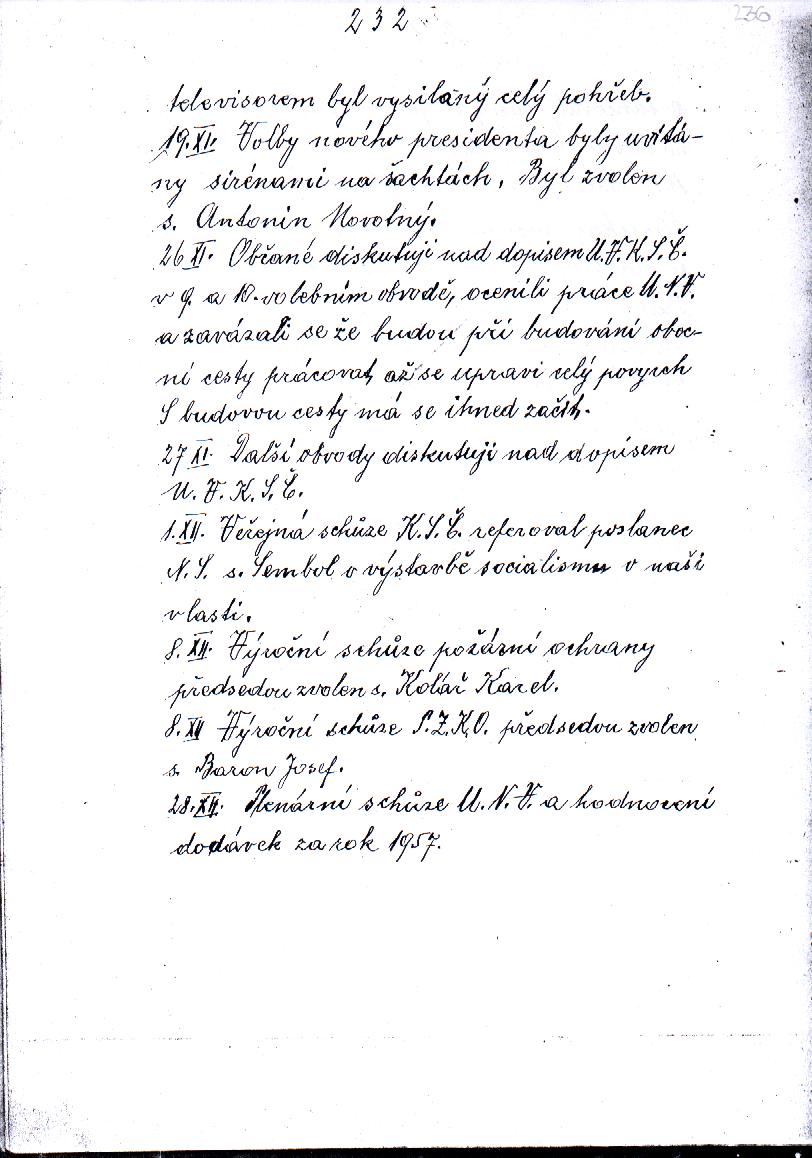 232
236
televisorem byl vysilaný celý pohřeb.
19.XI. Volby nového presidenta byly uvitá-
ny sirénami na šachtách, Byl zvolen
s. Antonin Novotný.
26 XI. Občané diskutuji nad dopisem U.V.K.S.Č.
v 9. a 10. volebním obvodě, ocenili práce U.N.V.
a zavázali se že budou při budování oboc-
ní cesty prácovat, až se upravi celý povrch
S budovou cesty má se ihned začít.
27 XI. Další obvody diskutuji nad dopisem
U.V.K.S.Č.
1.XII. Veřejná schůze K.S.Č. referoval poslanec
N.S. s. Sembol o výstavbě socialismu v naši
vlasti.
8.XII. Výroční schůze požární ochrany
předsedou zvolen s. Kolář Karel.
8.XII Výroční schůze S.Z.K.O. předsedou zvolen
s. Baron Josef.
28.XII. Plenární schůze U.N.V. a hodnocení
dodávek za rok 1957.